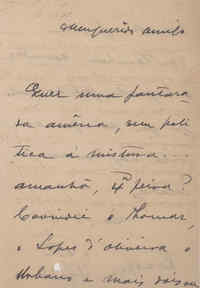 Meu querido amigo
Quer uma jantara
da amêna, sem poli
tica á mistura
amanhã, 4ª feira?
Convidei o Thomar,
o Lopes d'Oliveira o
Urbano e mais dois ou